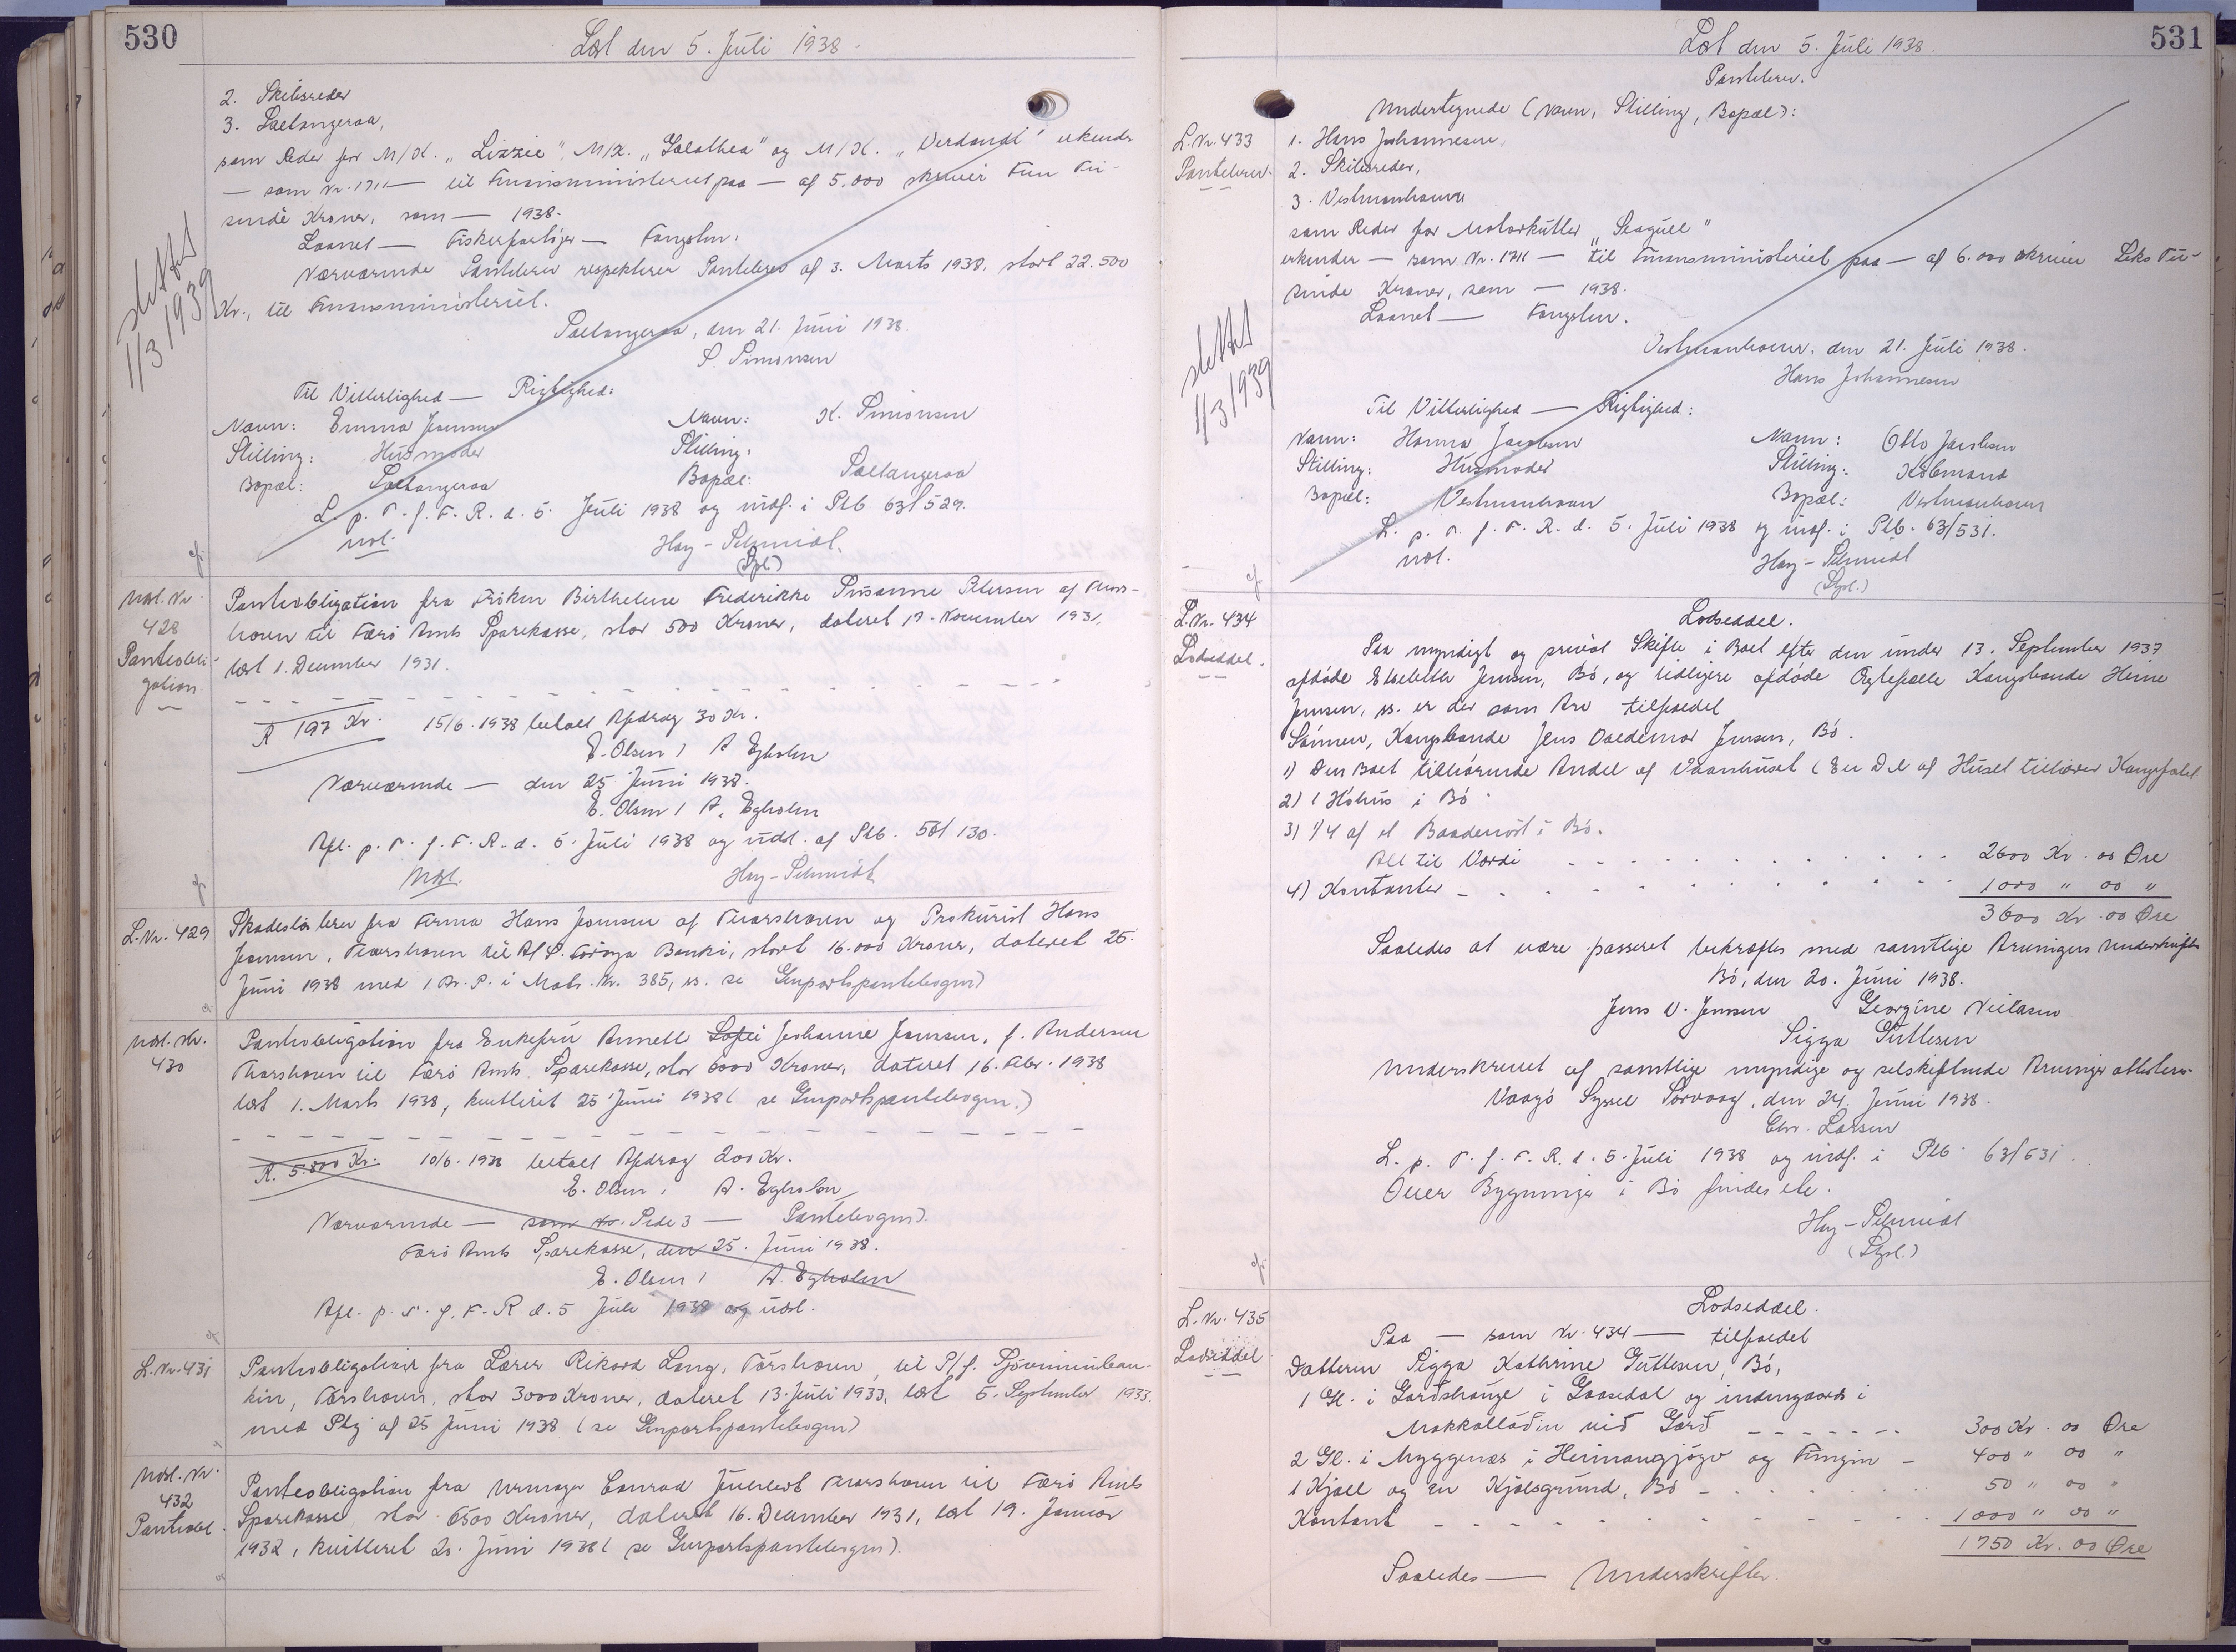 530
Læst den 5. Juli 1938.
2. Skibsreder
3. Saltangeraa,
som Reder for M/K. „Lizzie", M/K. „Galathea" og M/K. „Verdandi" erkender
— som Nr. 1711 — til Finansministeriet paa — af 5.000 skriver Fem Tu-
sinde Kroner, som — 1938.
Laanet — Fiskerfartøjer — Fangsten.
Nærværende Pantebrev respekterer Pantebrev af 3. Marts 1938, stort 22.500
Kr., til Finansministeriet.
Saltangeraa, den 21. Juni 1938.
S. Simonsen
slettet
1/3 1939
Til Vitterlighed — Rigtighed:
Navn: Emma Joensen Navn: K. Simonsen
Stilling: Husmoder Stilling:
Bopæl: Saltangeraa Bopæl: Saltangeraa
L. p. T. f. F. R. d. 5. Juli 1938 og indf. i Ptb 63/529.
udl. Hay-Schmidt.
(Spl.)
Udsl. Nr. 428
Panteobli-
gation
Panteobligation fra Frøken Birthelene Frederikke Susanne Petersen af Thors-
havn til Færø Amts Sparekasse, stor 500 Kroner, dateret 17. November 1931,
læst 1. December 1931.
R 197 Kr. 15/6. 1938 betalt Afdrag 30 Kr.
E. Olsen / A Egholm
Nærværende — den 25 Juni 1938.
E. Olsen / A. Egholm
Afl. p. T. f. F. R. d. 5. Juli 1938 og udsl. af Ptb. 58/130.
Udsl. Hay-Schmidt
L. Nr. 429
Skadesløsbrev fra Firma Hans Joensen af Thorshavn og Prokurist Hans
Joensen, Thorshavn til A/S. Føroya Banki, stort 16.000 Kroner, dateret 25.
Juni 1938 med 1 Pr. P. i Matr. Nr. 385, ss. se Genpartspantebogen)
Udsl. Nr.
430
Panteobligation fra Enkefru Annelt Sofie Johanne Joensen, f. Andersen
Thorshavn til Færø Amts Sparekasse, stor 6000 Kroner, dateret 16. Febr. 1938
læst 1. Marts 1938, kvitteret 25 Juni 1938 ( se Genpartspantebogen.)
R. 5.800 Kr. 10/6. 1938 betalt Afdrag 200 Kr.
E. Olsen / A. Egholm
Nærværende — som Nr. Side 3 — Pantebogen).
Færø Amts Sparekasse, den 25. Juni 1938.
E. Olsen / A. Egholm
Afl. p. T. f. F. R d. 5 Juli 1938 og udsl.
L. Nr. 431
Panteobligation fra Lærer Rikard Long, Tórshavn, til P/f. Sjóvinnuban-
kin, Tórshavn, stor 3000 Kroner, dateret 13. Juli 1933, læst 5. September 1933.
med Ptg af 25 Juni 1938 ( se Genpartspantebogen)
Udsl. Nr.
432
Panteobl.
Panteobligation fra Urmager Conrad Thorshavn til Færø Amts
Sparekasse, stor 6500 Kroner, dateret 16. December 1931, læst 19. Januar
1932, kvitteret 20. Juni 1938 ( se Genpartspantebogen).
531
Læst den 5. Juli 1938.
Pantebrev.
L. Nr. 433
Pantebrev.
Undertegnede (Navn, Stilling, Bopæl):
1. Hans Johannesen,
2. Skibsreder,
3. Vestmanhavn
som Reder for Motorkutter „Seagull"
erkender — som Nr. 1711 — til Finansministeriet paa — af 6.000 skriver Seks Tu-
sinde Kroner, som — 1938.
Laanet — Fangsten.
Vestmanhavn, den 21. Juli 1938.
Hans Johannesen
slettet
1/3 1939
Til Vitterlighed — Rigtighed:
Navn: Hanna Jacobsen Navn: Otto Jacobsen
Stilling: Husmoder Stilling: Købmand
Bopæl: Vestmanhavn Bopæl: Vestmanhavn
L. p. T. f. F. R. d. 5. Juli 1938 og indf. i Ptb. 63/531.
udl. Hay-Schmidt
(Spl.)
L. Nr. 434
Lodseddel.
Lodseddel.
Paa myndigt og privat Skifte i Boet efter den under 13. September 1937
afdøde Elsebeth Jensen, Bø, og tidligere afdøde Ægtefælle Kongsbonde Heine
Jensen, ss. er der som Arv tilfaldet
Sønnen, Kongsbonde Jens Valdemar Jensen, Bø.
1) Den Boet tilhørende Andel af Vaanhuset (En Del af Huset tilhører Kongsfæstet
2) 1 Høhus i Bø
3) 1/4 af et Baadenøst i Bø.
Alt til Værdi 2600 Kr. 00 Øre
4) Kontanter 1000 " 00 "
3600 Kr 00 Øre
Saaledes at være passeret bekræftes med samtlige Arvingers Underskrifter
Bø, den 20. Juni 1938.
Jens V. Jensen Georgine Nielsen
Sigga Guttesen
Underskrevet af samtlige myndige og selskiftende Arvinger attesteres
Vaagø Syssel Sørvaag, den 24. Juni 1938.
Chr. Larsen
L. p. T. f. F. R. d. 5. Juli 1938 og indf. i Ptb. 63/531.
Over Bygninger i Bø findes ele.
Hay-Schmidt
(Spl.)
L. Nr. 435
Lodseddel
Lodseddel.
Paa — som Nr. 434 — tilfaldet
Datteren Sigga Kathrine Guttesen, Bø,
1 Gl. i Garðshauge i Gaasedal og indengaards i
Mokkallaðin við Garð 300 Kr. 00 Øre
2 Gl. i Myggenæs i Heimangjógv og Tingin 400 " 00 "
1 Kjall og en Kjalsgrund, Bø 50 " 00 "
Kontant 1000 " 00 "
1750 Kr. 00 Øre
Saaledes — Underskrifter.